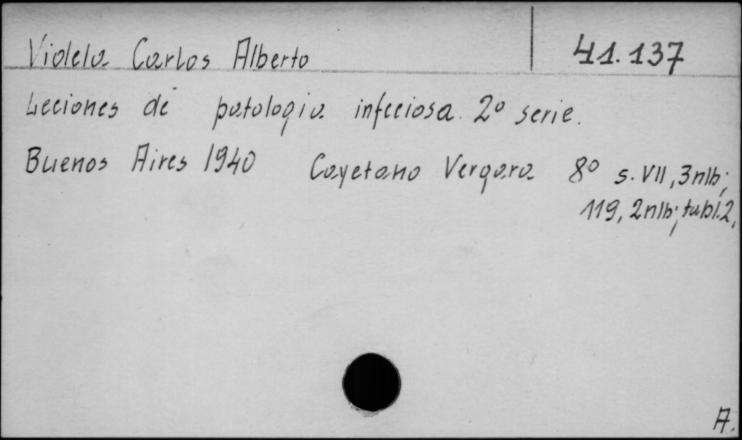 Violela Carlos Alberto 41.137
Leciones de patologia infeciosa. 2º serie.
Buenos Aires 1940 Cayetano Vergara 8º s. VII, 3nlb;
119, 2nlb; tabl. 2,
A.